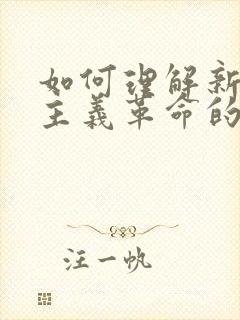 如何理解新
主义革命的
汪一帆